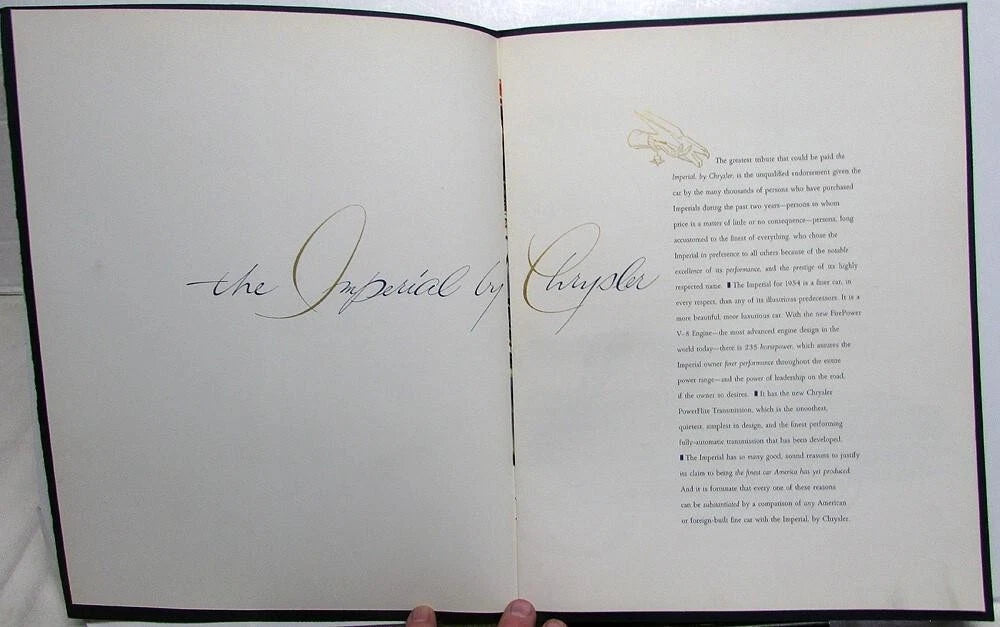 the Imperial by Chrysler
The greatest tribute that could be paid the
Imperial, by Chrysler, is the unqualified endorsement given the
car by the many thousands of persons who have purchased
Imperials during the past two years—persons to whom
price is a matter of little or no consequence—persons, long
accustomed to the finest of everything, who chose the
Imperial in preference to all others because of the notable
excellence of its performance, and the prestige of its highly
respected name. ▮ The Imperial for 1954 is a finer car, in
every respect, than any of its illustrious predecessors. It is a
more beautiful, more luxurious car. With the new FirePower
V-8 Engine—the most advanced engine design in the
world today—there is 235 horsepower, which assures the
Imperial owner finer performance throughout the entire
power range—and the power of leadership on the road,
if the owner so desires. ▮ It has the new Chrysler
PowerFlite Transmission, which is the smoothest,
quietest, simplest in design, and the finest performing
fully-automatic transmission that has been developed.
▮ The Imperial has so many good, sound reasons to justify
its claim to being the finest car America has yet produced.
And it is fortunate that every one of these reasons
can be substantiated by a comparison of any American
or foreign-built fine car with the Imperial, by Chrysler.